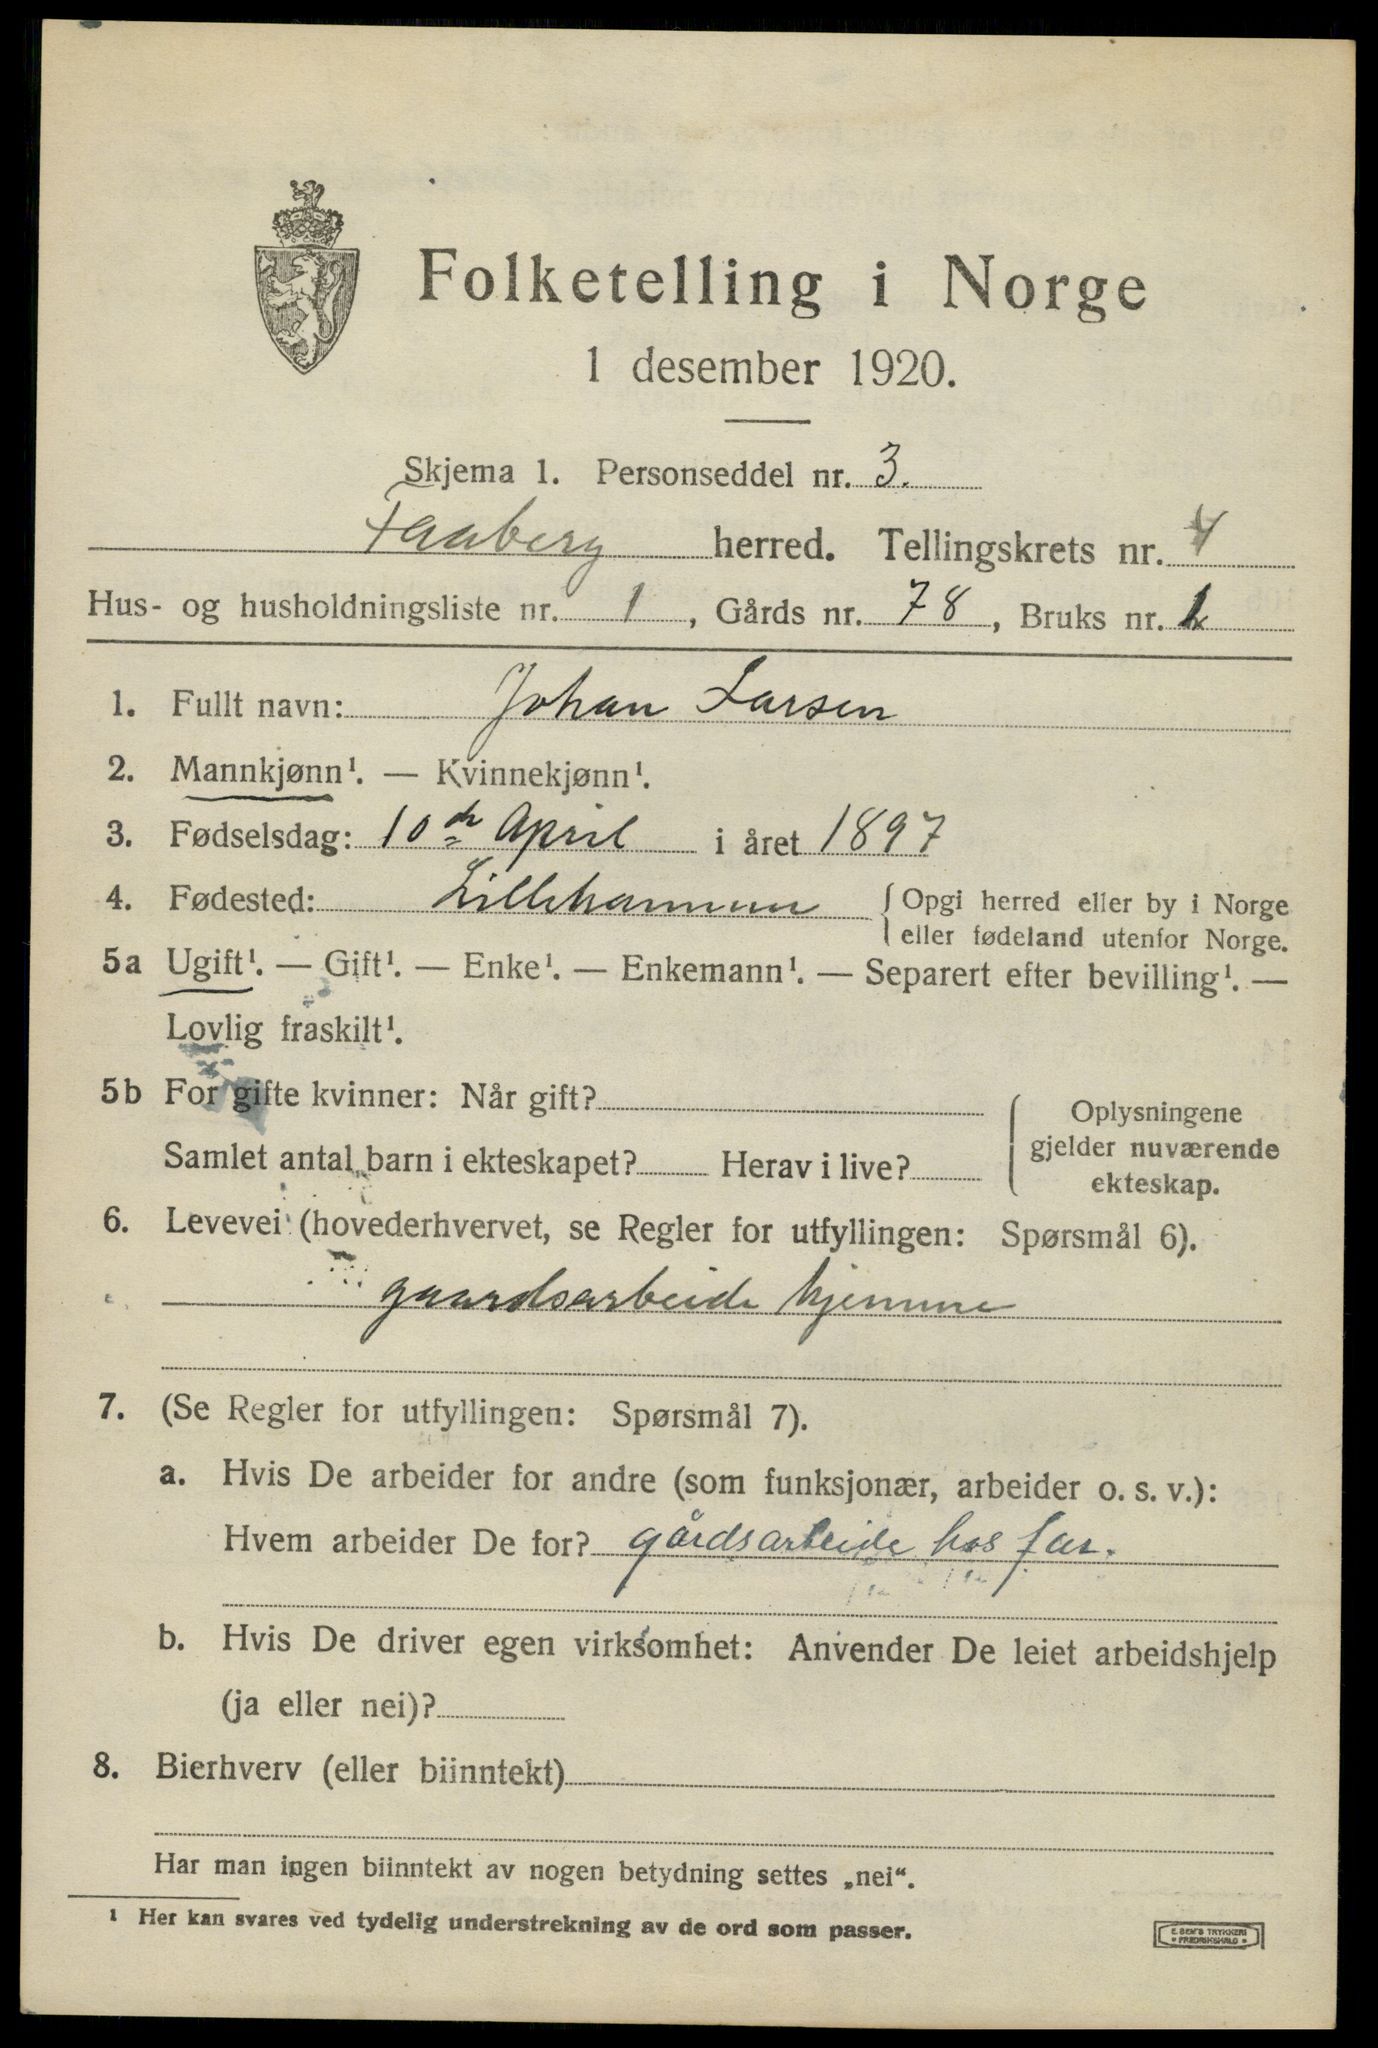 Folketelling i Norge
1 desember 1920.
Skjema 1. Personseddel nr. 3.
Faaberg herred. Tellingskrets nr. 4
Hus- og husholdningsliste nr. 1, Gårds nr. 78, Bruks nr. 1
1. Fullt navn: Johan Larsen
2. Mannkjønn¹. — Kvinnekjønn¹.
3. Fødselsdag: 10de April i året 1897
4. Fødested: Lillehammer { Opgi herred eller by i Norge
eller fødeland utenfor Norge.
5a Ugift¹. — Gift¹. — Enke¹. — Enkemann¹. — Separert efter bevilling¹. —
Lovlig fraskilt¹.
5b For gifte kvinner: Når gift?
Samlet antal barn i ekteskapet? Herav i live?
Oplysningene
gjelder nuværende
ekteskap.
6. Levevei (hovederhvervet, se Regler for utfyllingen: Spørsmål 6).
gaardsarbeide hjemme
7. (Se Regler for utfyllingen: Spørsmål 7).
a. Hvis De arbeider for andre (som funksjonær, arbeider o. s. v.):
Hvem arbeider De for? gårdsarbeide hos far.
b. Hvis De driver egen virksomhet: Anvender De leiet arbeidshjelp
(ja eller nei)?
8. Bierhverv (eller biinntekt)
Har man ingen biinntekt av nogen betydning settes „nei“.
¹ Her kan svares ved tydelig understrekning av de ord som passer.
E. SEM'S TRYKKERI
FREDRIKSHALD